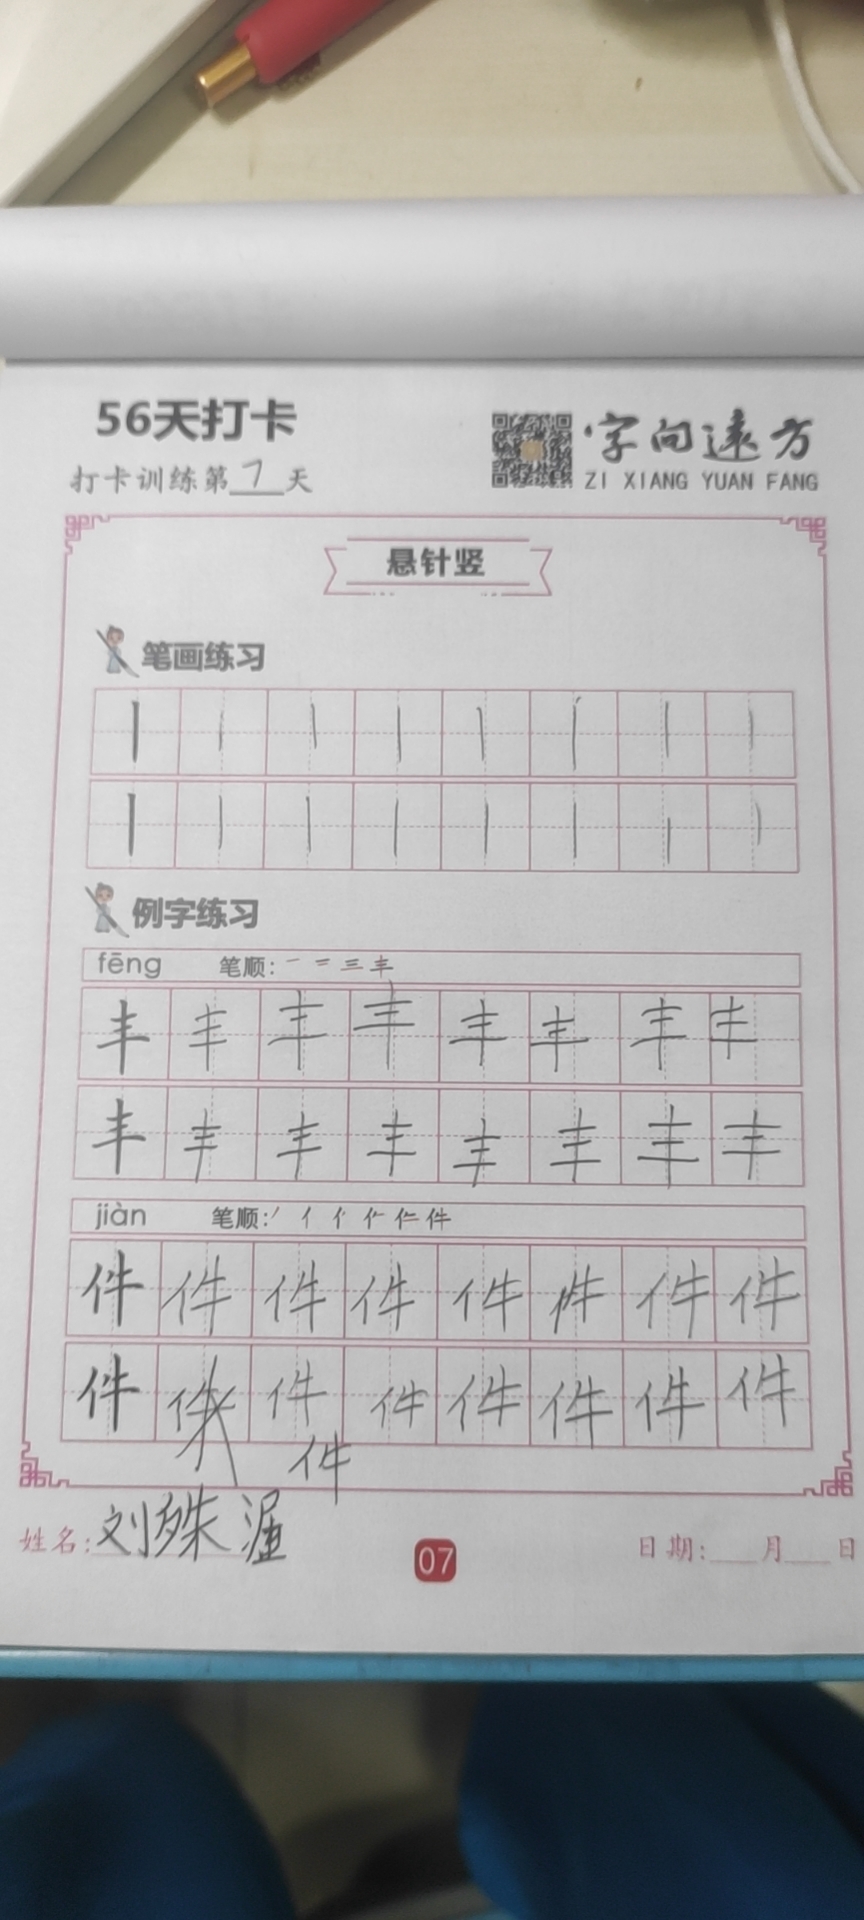 56天打卡
字向远方
打卡训练第7天
ZI XIANG YUAN FANG
悬针竖
笔画练习
丨 丨 丨 丨 丨 丨 丨 丨
丨 丨 丨 丨 丨 丨 丨 丨
例字练习
fēng 笔顺: 一 二 三 丰
丰 丰 丰 丰 丰 丰 丰 丰
丰 丰 丰 丰 丰 丰 丰 丰
jiàn 笔顺: 件
件 件 件 件 件 件 件 件
件 件 件 件 件 件 件 件
件
姓名: 刘殊渥
07
日期: 月 日